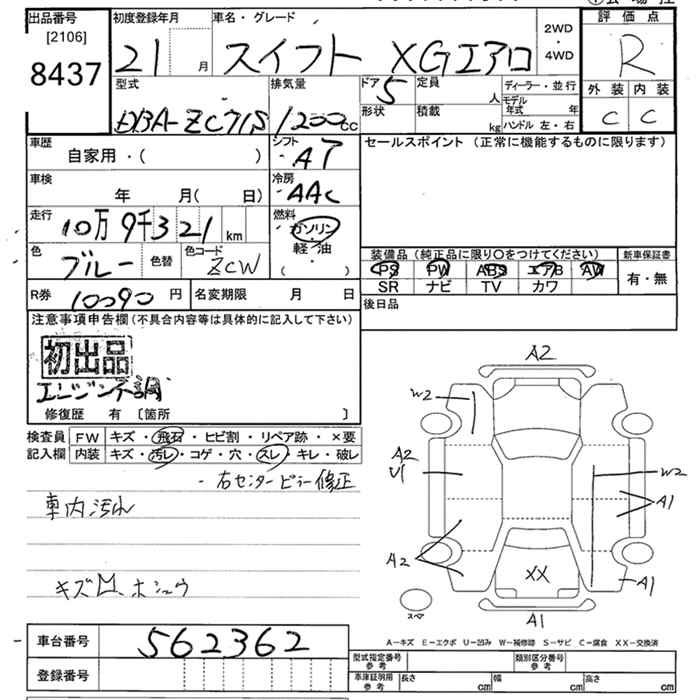 出品番号 初度登録年月 車名・グレード 2WD・4WD 評価点
[2106]
8437 21 月 スイフト XGエアロ R
型式 排気量 ドア 5 定員 人 ディーラー・並行 外装 内装
DBA-ZC71S 1200cc 形状 積載 kg モデル年式 年 ハンドル 左・右 C C
車歴 自家用・( ) シフト AT セールスポイント (正常に機能するものに限ります)
車検 年 月( 日) 冷房 AAC
走行 10万9千321 km 燃料 ガソリン 軽・油 ( )
色 ブルー 色替 色コード ZCW 装備品 (純正品に限り〇をつけてください) 新車保証書
PS PW ABS エアB AW 有・無
SR ナビ TV カワ
R券 10090円 名変期限 月 日 後日品
注意事項申告欄(不具合内容等は具体的に記入して下さい)
初出品
エンジン不調
修復歴 有 〔箇所 〕
検査員 FW キズ・飛石・ヒビ割・リペア跡・×要
記入欄 内装 キズ・汚レ・コゲ・穴・スレ・キレ・破レ
・右センターピラー修正
車内汚れ
キズ凹、ホシュウ
A2
W2
A2
U1
W2
A1
A2
XX
A1
スペア
A1
A-キズ E-エクボ U-凹み W-補修跡 S-サビ C-腐食 XX-交換済
車台番号 562362
登録番号
型式指定番号 参考 類別区分番号 参考
車庫証明用 参考 長さ cm 幅 cm 高さ cm